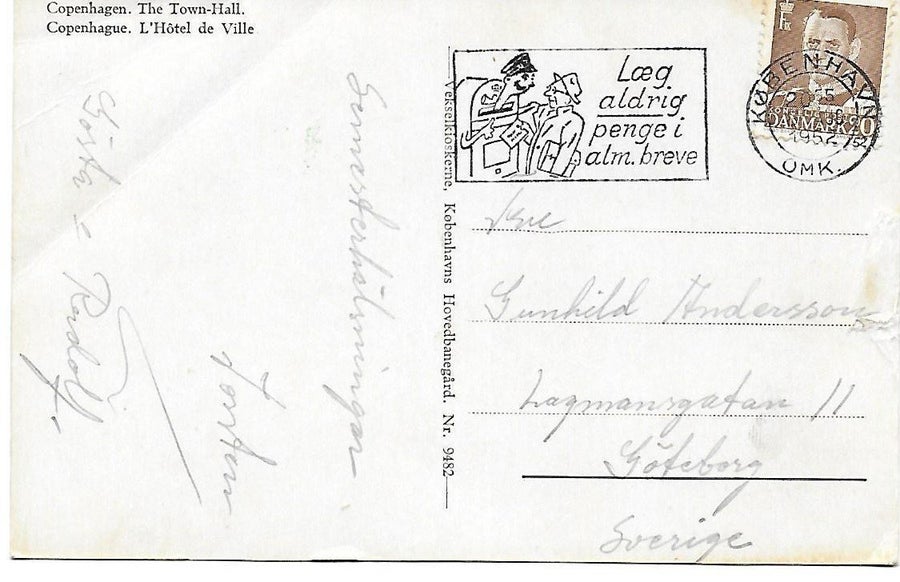 Copenhagen. The Town-Hall.
Copenhague. L'Hôtel de Ville
Semesterhälsningar
Torsten
Gösta o Rudolf.
Vekselkioskerne, Københavns Hovedbanegård. Nr. 9482
Læg
aldrig
penge i
alm. breve
KØBENHAVN
1952
OMK.
DANMARK 20
Gunhild Andersson
Lagmansgatan 11
Göteborg
Sverige